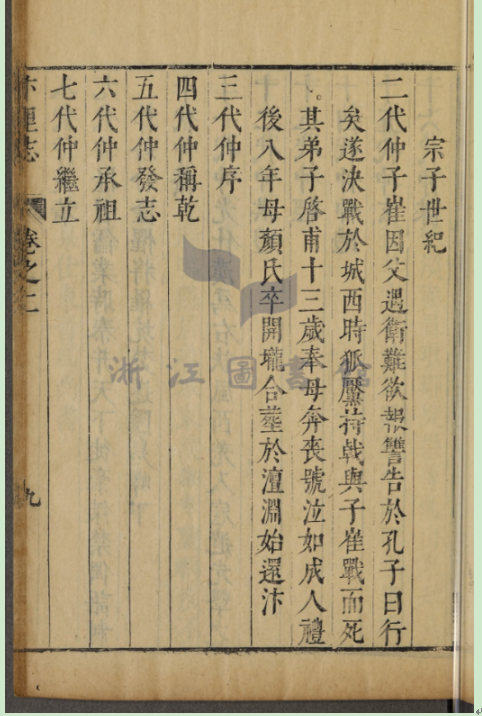 宗子世紀
二代仲子崔因父遇衛難欲報讐告於孔子曰行
矣遂決戰於城西時狐黶持戟與子崔戰而死
其弟子啓甫十三歲奉母奔喪號泣如成人禮
後入年母顏氏卒開壠合塟於澶淵始還汴
三代仲序
四代仲稱乾
五代仲發志
六代仲承祖
七代仲繼立
里志
卷之二
九
浙江圖書館